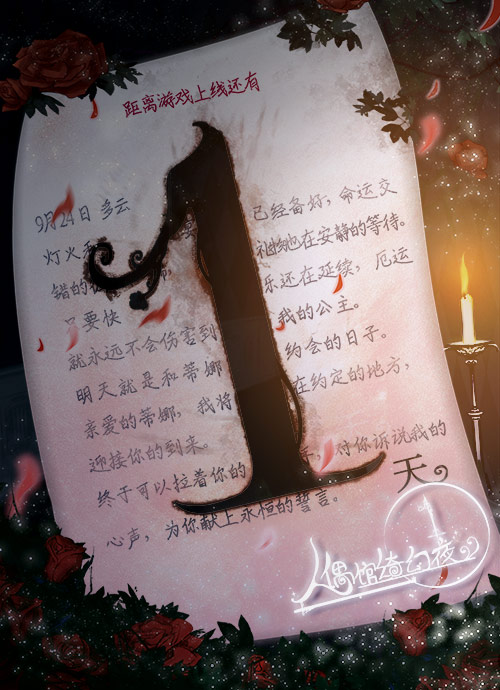 距离游戏上线还有
1
9月24日 多云
灯火 已经备好，命运交
错的 祂她也在安静的等待。
只要快 乐还在延续，厄运
就永远不会伤害到 我的公主。
明天就是和蒂娜 约会的日子。
亲爱的蒂娜，我将 在约定的地方，
迎接你的到来。
终于可以拉着你的 ，对你诉说我的
心声，为你献上永恒的誓言。
天
人偶馆绮幻夜